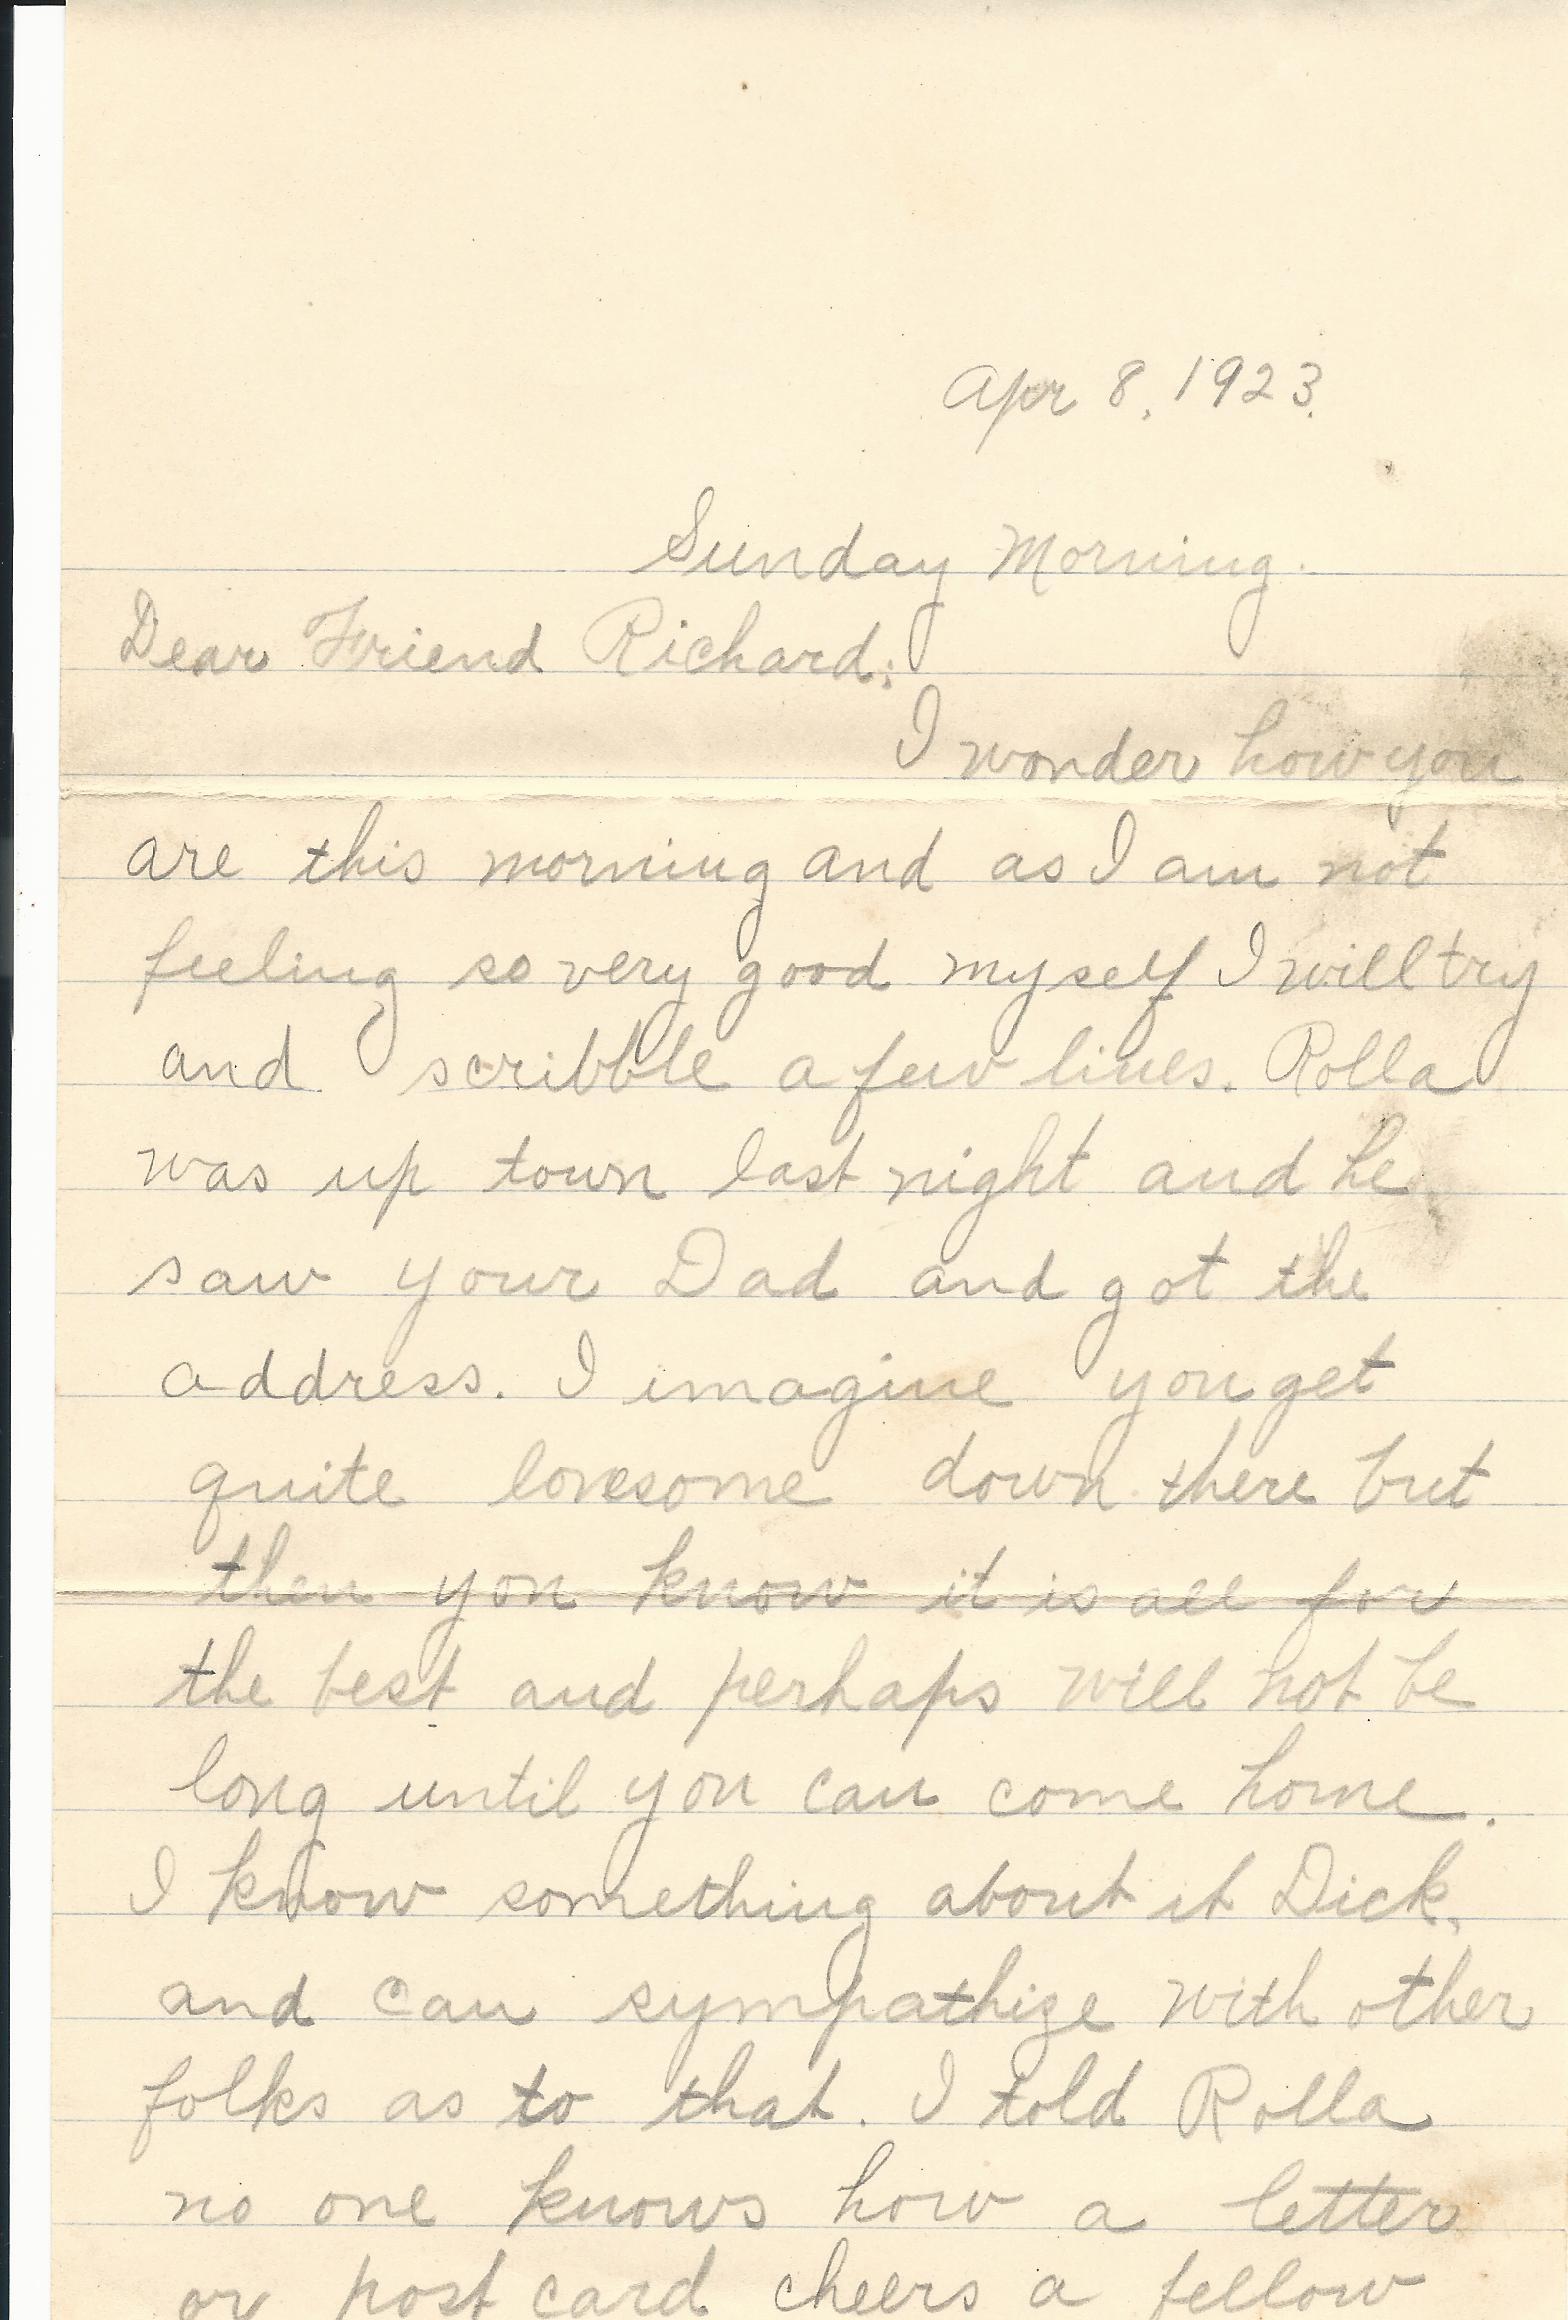 Apr 8, 1923.
Sunday Morning.
Dear Friend Richard;
I wonder how you
are this morning and as I am not
feeling so very good myself I will try
and scribble a few lines. Rolla
was up town last night and he
saw your Dad and got the
address. I imagine you get
quite lonesome down there but
then you know it is all for
the best and perhaps will not be
long until you can come home.
I know something about it Dick,
and can sympathize with other
folks as to that. I told Rolla
no one knows how a letter
or post card cheers a fellow